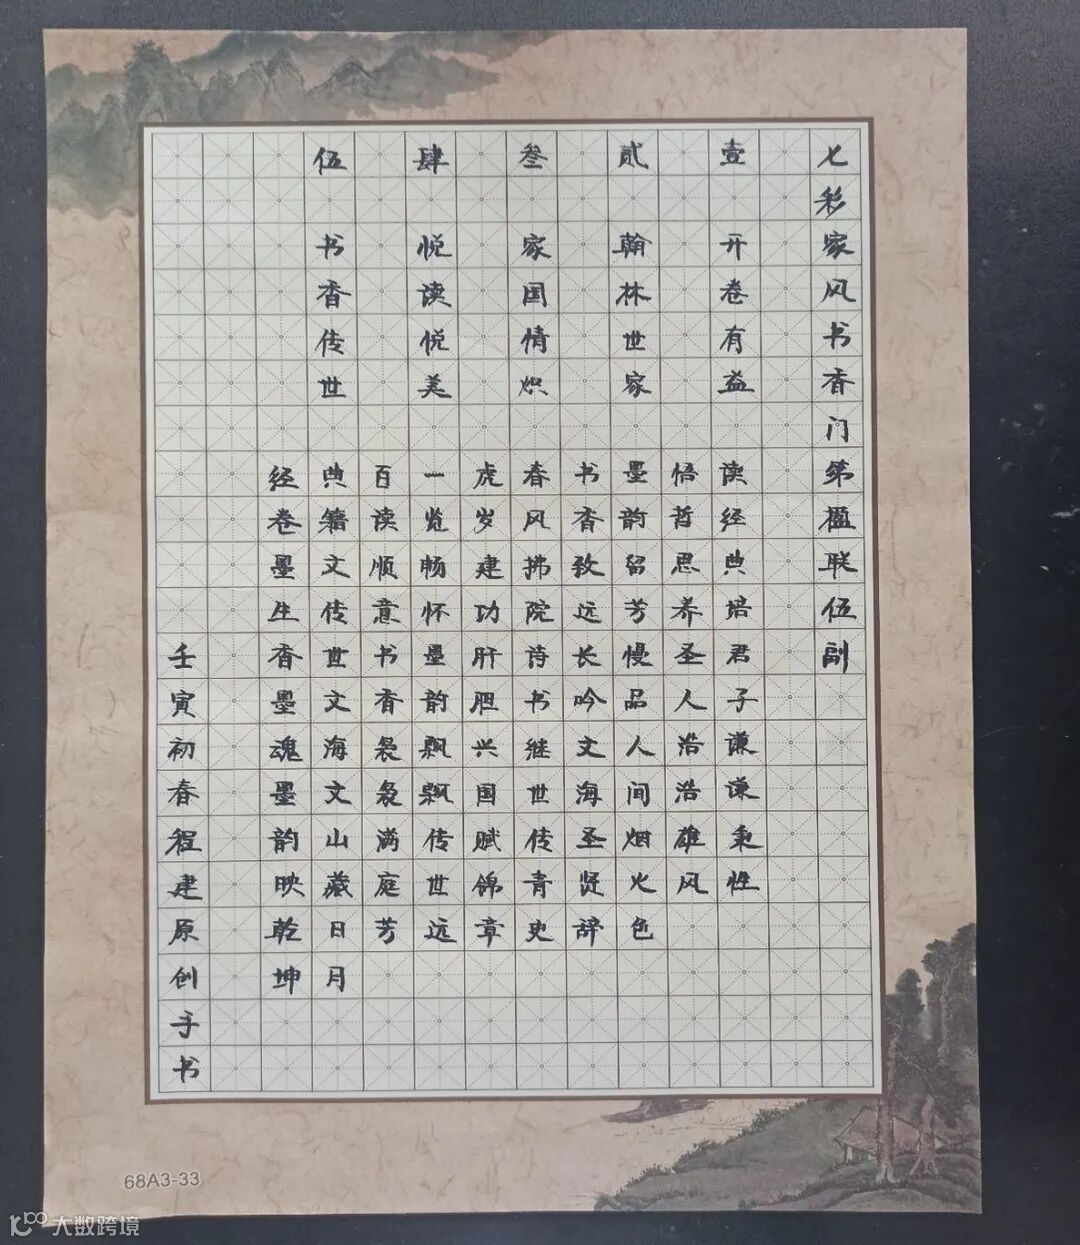 七彩家风书香门第楹联伍副
壹 开卷有益 读经典培君子谦谦秉性
悟哲思养圣人浩浩雄风
贰 翰林世家 墨韵留芳慢品人间烟火色
书香致远长吟文海圣贤辞
叁 家国情炽 春风拂院诗书继世传青史
虎岁建功肝胆兴国赋锦章
肆 悦读悦美 一览畅怀墨韵飘飘传世远
百读顺意书香袅袅满庭芳
伍 书香传世 典籍文传世文海文山藏日月
经卷墨生香墨魂墨韵映乾坤
壬寅初春程建原创手书
68A3-33
大数跨境